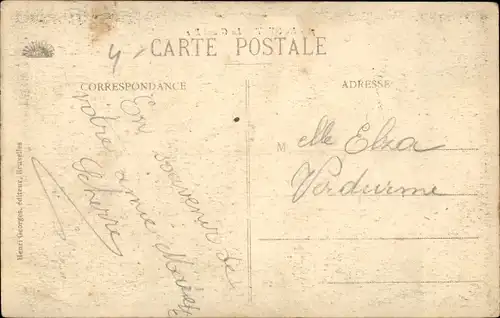 CARTE POSTALE
CORRESPONDANCE
ADRESSE
En souvenir de
votre amie
M elle Elza
Verdurme
Henri Georges, éditeur, Bruxelles